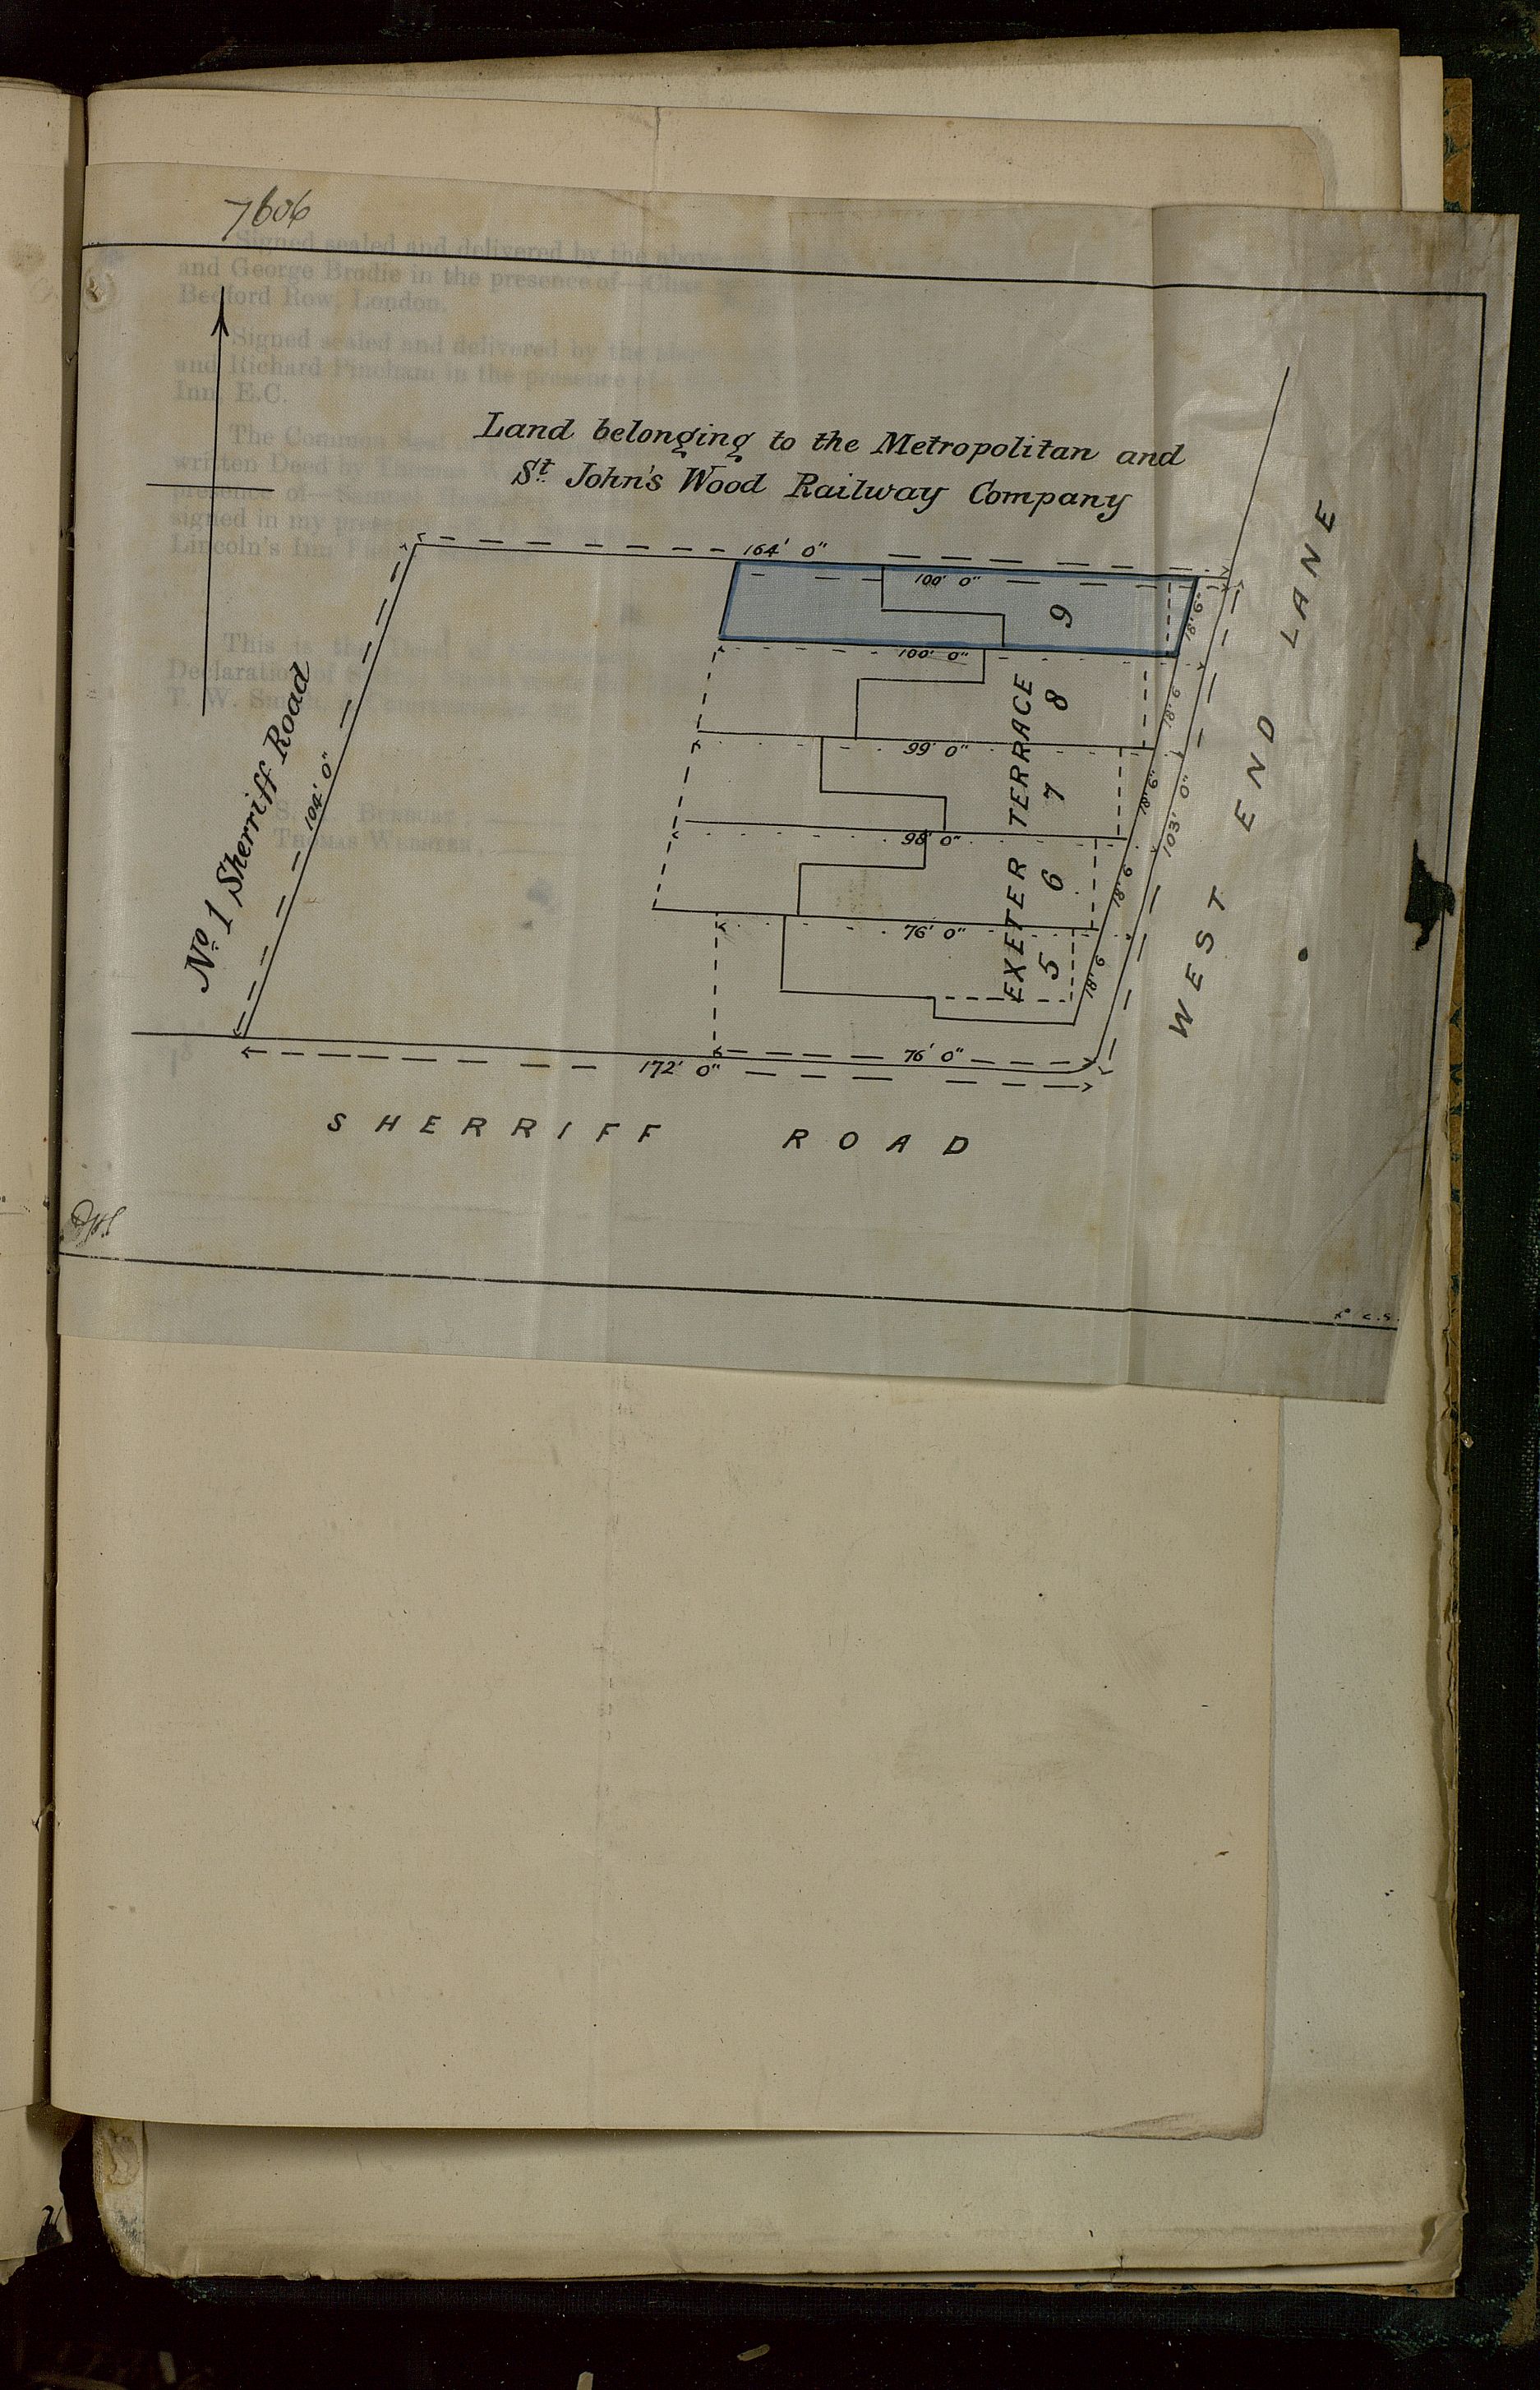 7606
Signed sealed and delivered by the above
and George Brodie in the presence of
Bedford Row, London.
Signed sealed and delivered by the
and Richard Pincham in the presence of
Inn E.C.
The Common Seal
written Deed
presence of
signed in my
Lincoln's Inn
Land belonging to the Metropolitan and
St. John's Wood Railway Company
164' 0"
100' 0"
9
18'.9"
100' 0"
8
18'.9"
99' 0"
7
18'.9"
98' 0"
6
18'.9"
76' 0"
5
18'.9"
EXETER TERRACE
103' 0"
WEST END LANE
No. 1 Sherriff Road
104' 0"
This is the
Declaration of
T. W.
Thomas Webster,
76' 0"
172' 0"
SHERRIFF ROAD